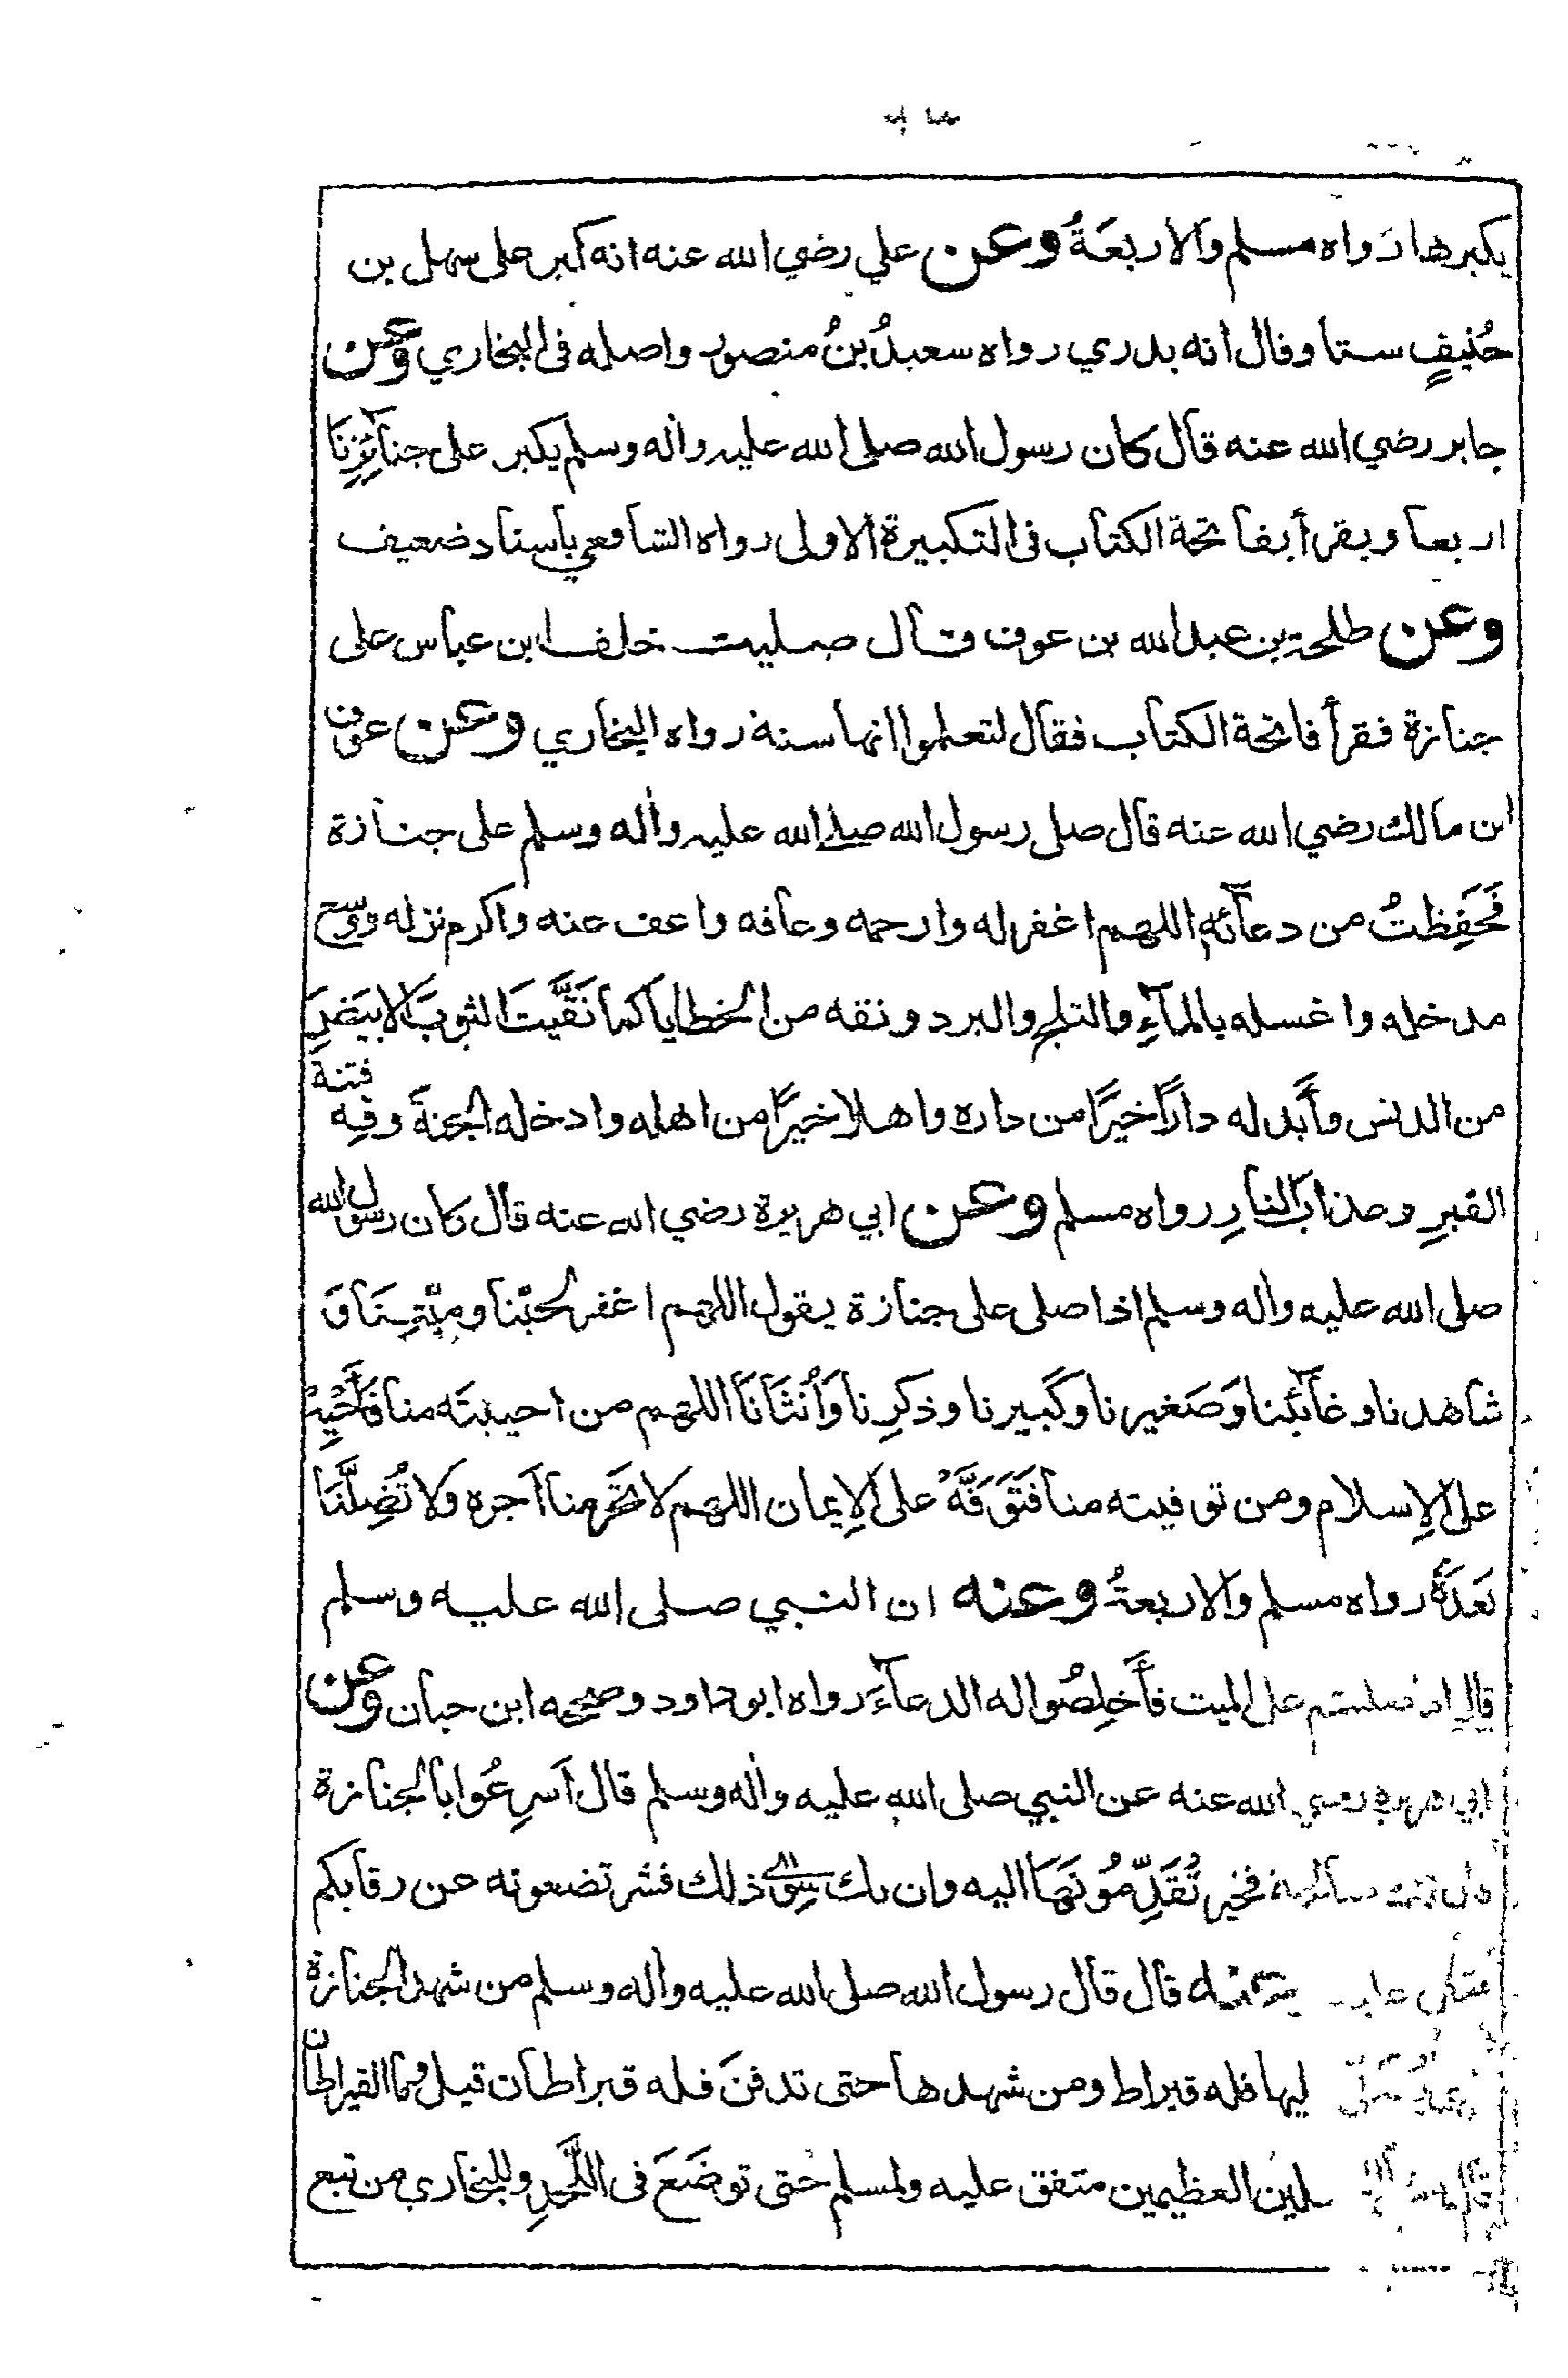 يكبرها رَواه مسلم والاربعَةُ وعن علي رضي الله عنه انه كبر على سهل بن
حُنيفٍ ستا وقال انه بدري رواه سعيدُ بنُ منصور واصله في البخاري وعن
جابر رضي الله عنه قال كان رسول الله صلى الله عليه واٰله وسلم يكبر على جنائِزِنَا
اربعا ويقرأ بفاتحة الكتاب في التكبيرة الاولى رواه الشافعي باسناد ضعيف
وعن طلحة بن عبد الله بن عوف قال صليت خلف ابن عباس على
جنازة فقرأ فاتحة الكتاب فقال لتعلموا انها سنة رواه البخاري وعن عوف
ابن مالك رضي الله عنه قال صلى رسول الله صلى الله عليه واٰله وسلم على جنازة
فَحَفِظتُ من دعآئه اللهم اغفر له وارحمه وعافه واعف عنه واكرم نزله ووسع
مدخله واغسله بالمآءِ والثلج والبرد ونقه من الخطايا كما نَقَّيتَ الثوبَ الابيَضَ
من الدنس وأَبدله داراً خيرًا من داره واهلا خيرًا من اهله وادخله الجنةَ وقِه فتنة
القبرِ وعذابَ النارِ رواه مسلم وعن ابي هريرة رضي الله عنه قال كان رسول الله
صلى الله عليه واٰله وسلم اذا صلى على جنازة يقول اللهم اغفر لحيّنا وميّتِنَا وَ
شاهدنا وغآئبنا وَصَغيرنا وكَبيرنا وذكرِنا وَاُنثَانَا اللهم من احييتَه منا فَأَحْيِهْ
على الاِسلام ومن توفيته منا فَتَوَفَّهْ على الاِيمان اللهم لا تَحرِمنا اَجره ولا تُضِلَّنَا
بَعدَهُ رواه مسلم والاربعةُ وعنه ان النبي صلى الله عليه وسلم
قال اذا صليتم على الميت فأَخلِصُوا له الدعآءَ رواه ابو داود وصححه ابن حبان وعن
ابي هريرة رضي الله عنه عن النبي صلى الله عليه واٰله وسلم قال اَسرِعُوا بالجنازة
فان تك صالحة فخير تُقَدِّمُونَهَا اليه وان تك سِوٰى ذلك فشر تضعونه عن رقابكم
متفق عليه وعنه قال قال رسول الله صلى الله عليه واٰله وسلم من شهد الجنازة
حتى يصلى عليها فله قيراط ومن شهدها حتى تدفنَ فله قيراطان قيل وما القيراطان
قال مثل الجبلين العظيمين متفق عليه ولمسلم حتى توضَعَ في اللَّحدِ وللبخاري من تبع